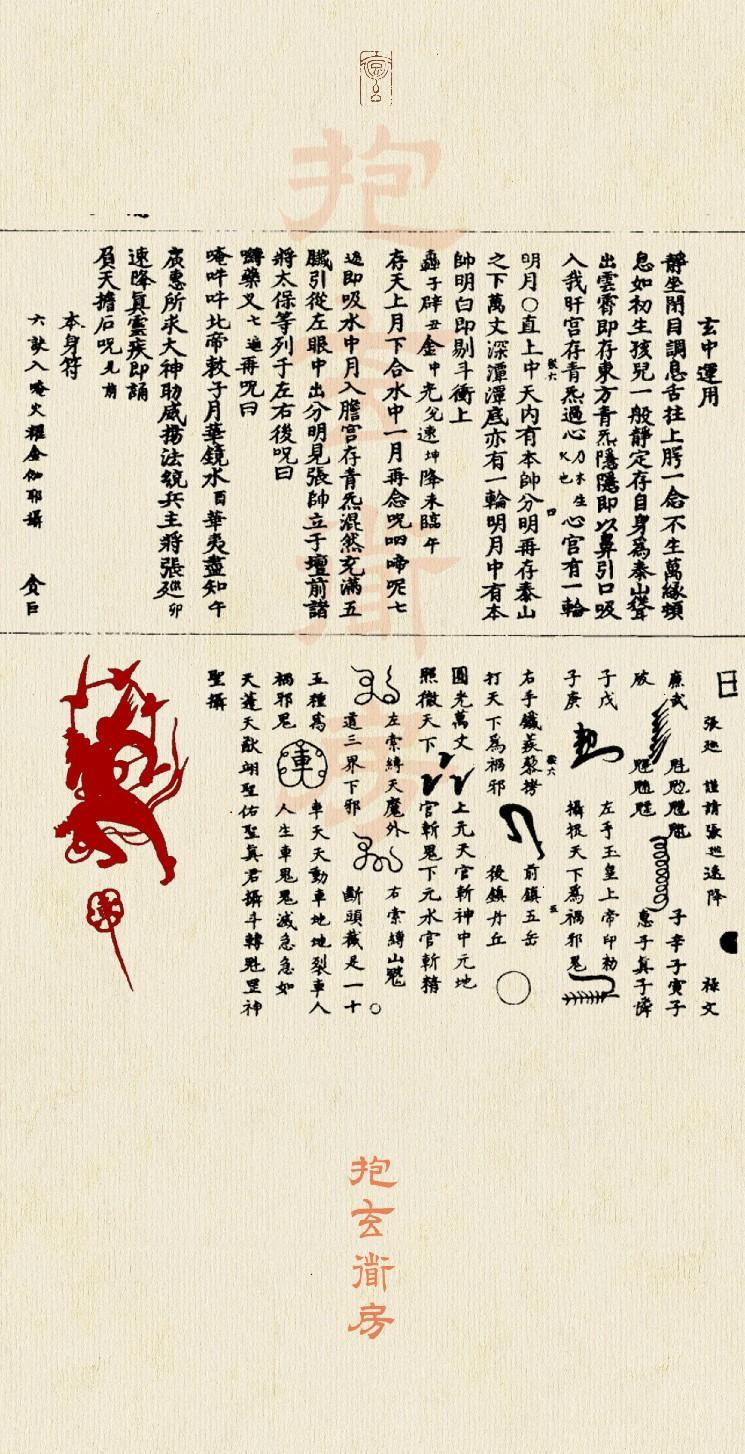 抱玄衜房
玄中運用
靜坐閉目調息舌拄上腭一念不生萬緣頓
息如初生孩兒一般靜定存自身為泰山聳
出雲霄即存東方青炁隱隱即以鼻引口吸
入我肝宮存青炁過心乃木生火也心宮有一輪
明月〇直上中天內有本帥分明再存泰山
之下萬丈深潭潭底亦有一輪明月中有本
帥明白即剔斗衝上
存天上月下合水中一月再念呪呬啼呢七
遍即吸水中月入膽宮存青炁混然充滿五
臟引從左眼中出分明見張帥立于壇前諸
將太保等列于左右後呪曰
再呪曰
唵吽吽北帝敕子月華鏡水百華夷盡知午
廣惠所求大神助威揚法統兵主將張卯
速降真靈疾即誦
負天擔石呪見前
本身符
六訣入唵火耀金伽耶攝
貪巨
祿文
張巡
謹請張巡速降
廉武
魁
子辛子寅子
破
惠子真子
子戊
左手玉皇上帝印勑
子庚
攝捉天下為禍邪鬼
右手鐵蒺藜拷
前鎮五岳
打天下為禍邪
後鎮丹丘
圓光萬丈
上元天官斬神中元地
照徹天下
官斬鬼下元水官斬精
左索縛天魔外
右索縛山魈
道三界下邪
斷頭截足一十
五種為
車天天動車地地裂車人
禍邪鬼
車
人生車鬼鬼滅急急如
天蓬天猷翊聖佑聖真君攝斗轉魁罡神
聖攝
抱玄衜房